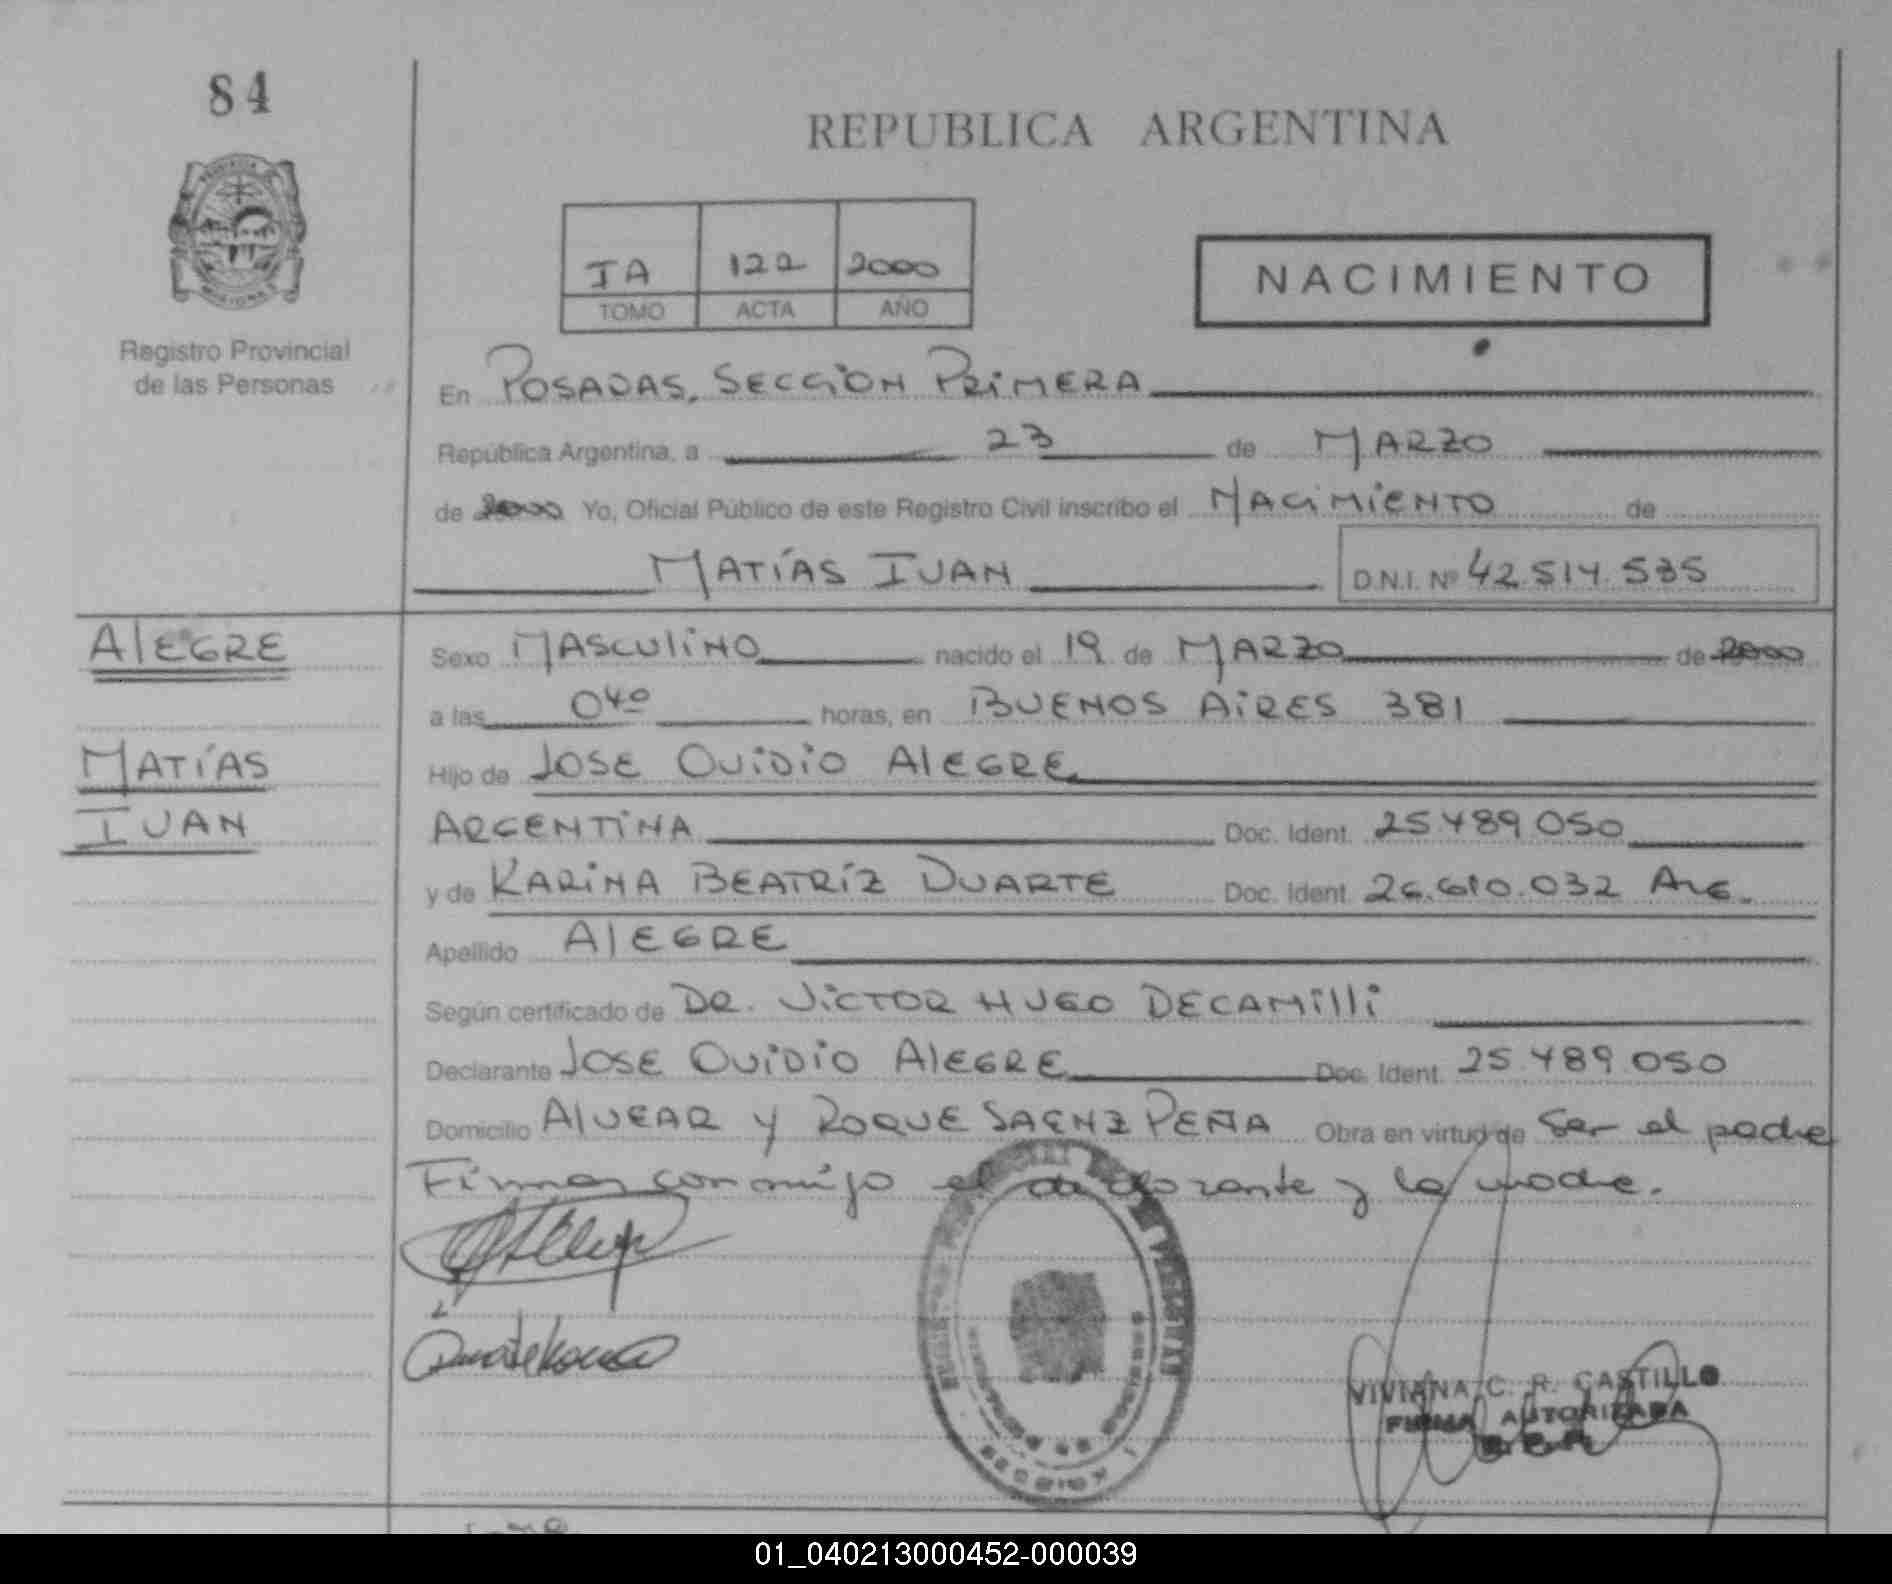 84
REPUBLICA ARGENTINA
IA 122 2000
TOMO ACTA AÑO
NACIMIENTO
Registro Provincial
de las Personas
En POSADAS, SECCION PRIMERA
República Argentina, a 23 de MARZO
de 2000 Yo, Oficial Público de este Registro Civil inscribo el NACIMIENTO de
MATÍAS IVAN D.N.I. Nº 42.514.535
ALEGRE
MATÍAS
IVAN
Sexo MASCULINO nacido el 19 de MARZO de 2000
a las 04º horas, en BUENOS AIRES 381
Hijo de JOSE OVIDIO ALEGRE
ARGENTINA Doc. Ident. 25.489.050
y de KARINA BEATRÍZ DUARTE Doc. Ident. 26.610.032 ARG.
Apellido ALEGRE
Según certificado de DR. VICTOR HUGO DECAMILLI
Declarante JOSE OVIDIO ALEGRE Doc. Ident. 25.489.050
Domicilio ALVEAR y ROQUE SAENZ PEÑA Obra en virtud de ser el padre
Firman conmigo el declarante y la madre.
VIVIANA C. R. CASTILLO
FIRMA AUTORIZADA
01_040213000452-000039